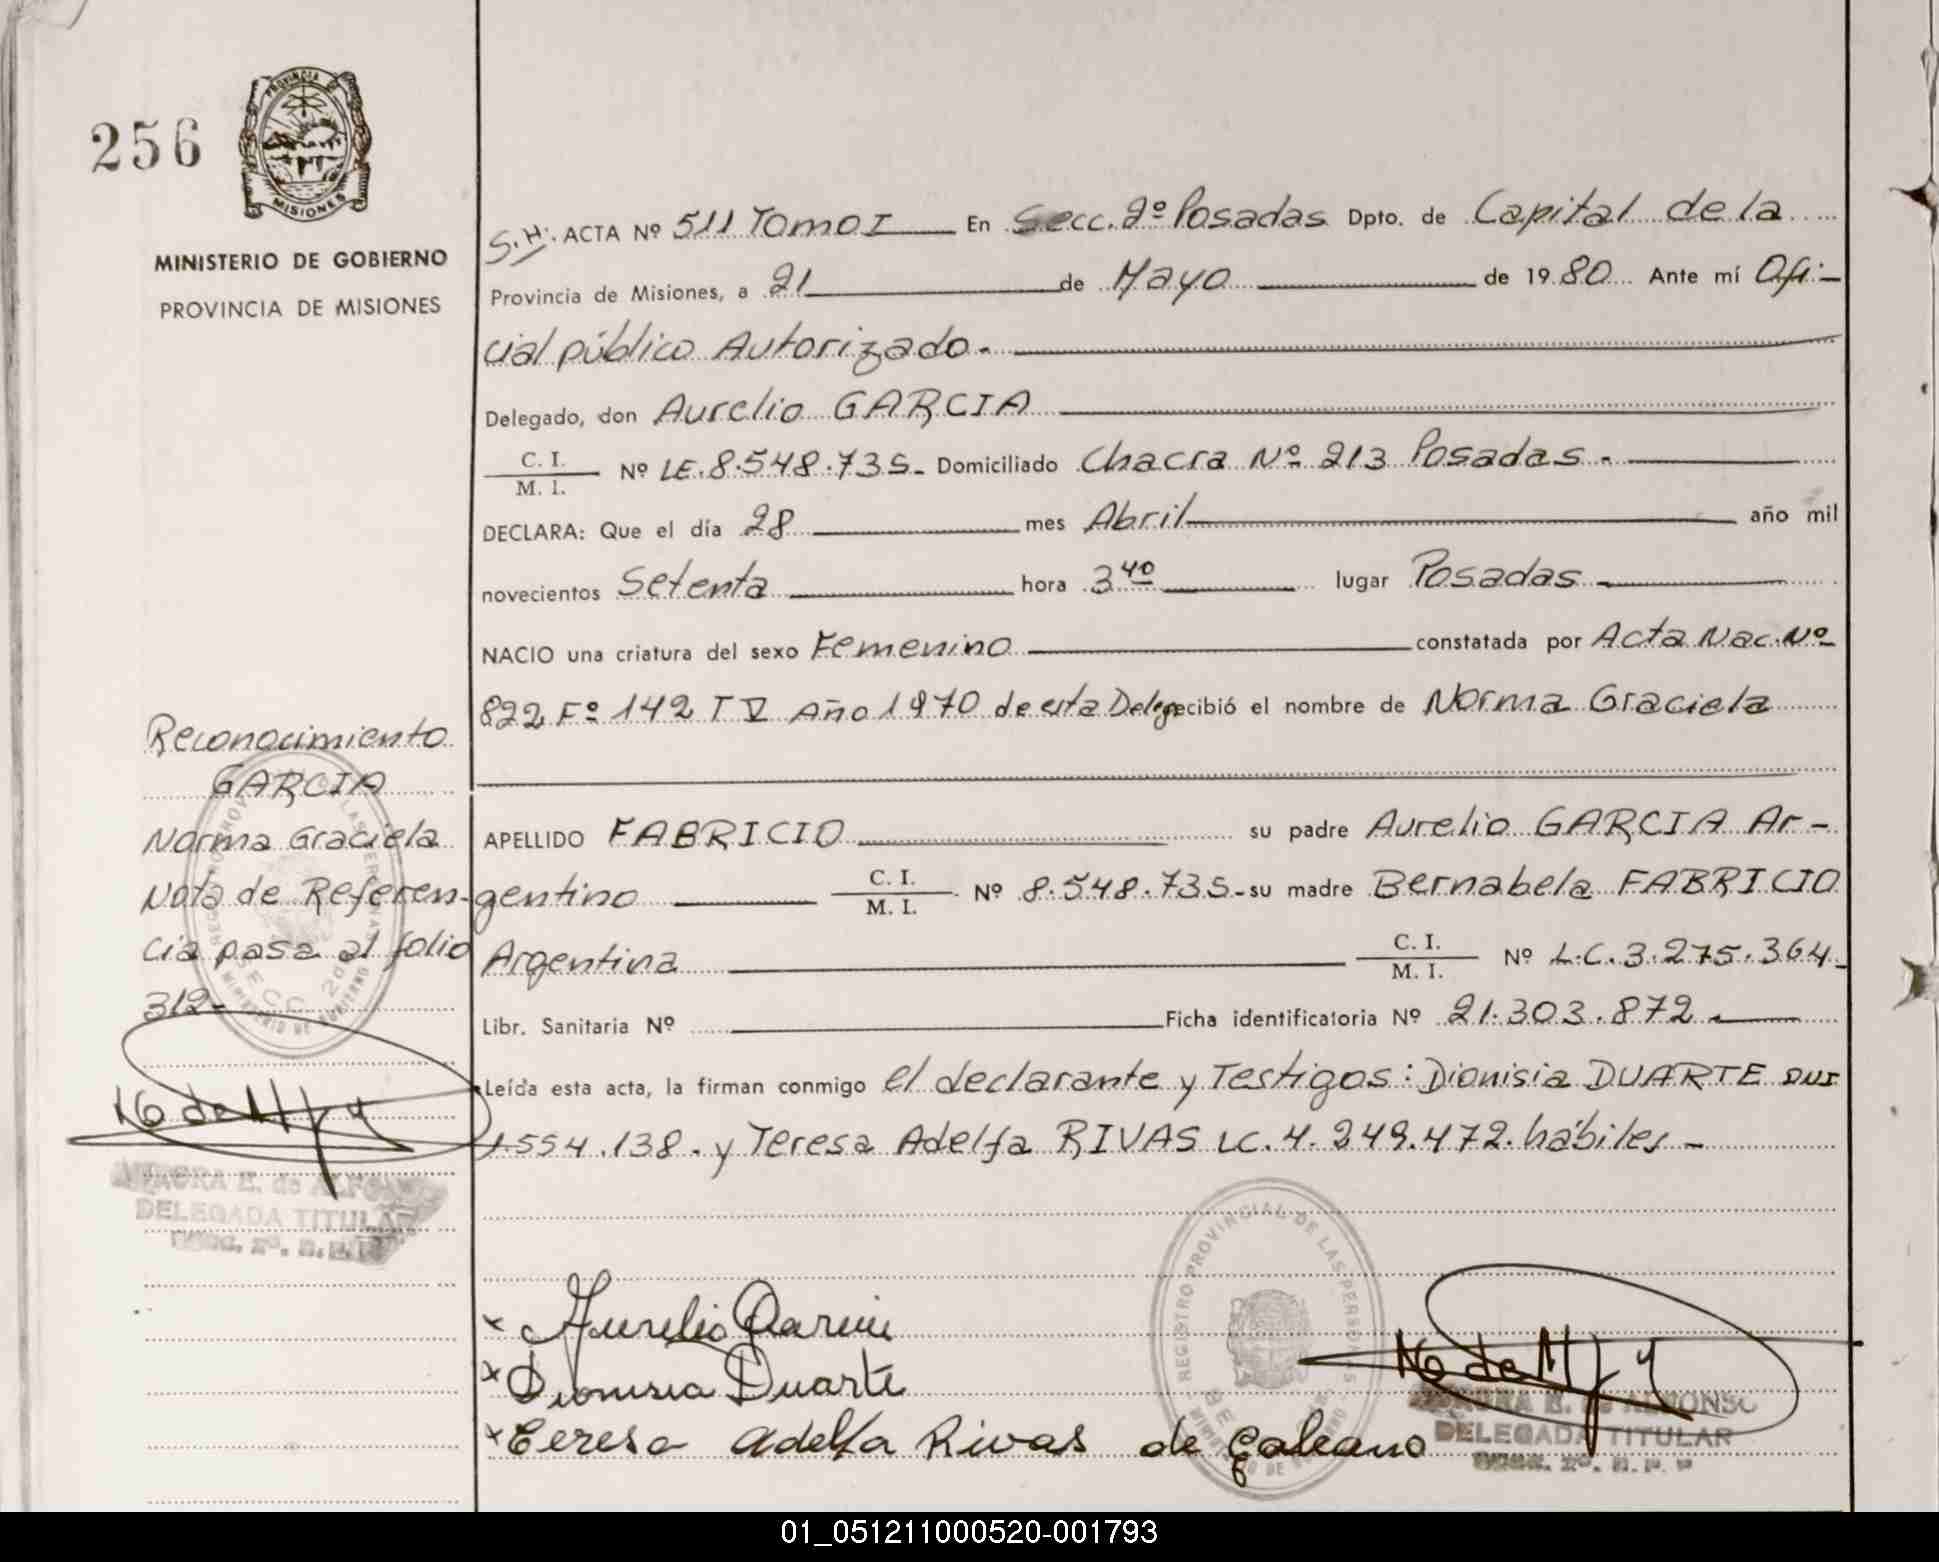 256
PROVINCIA DE
MISIONES
MINISTERIO DE GOBIERNO
PROVINCIA DE MISIONES
S.H. ACTA Nº 511 Tomo I En Secc. 2º Posadas Dpto. de Capital de la
Provincia de Misiones, a 21 de Mayo de 1980 Ante mí Ofi-
cial público Autorizado.
Delegado, don Aurelio GARCIA
C. I.
M. I. Nº LE. 8.548.735- Domiciliado Chacra Nº 213 Posadas.
DECLARA: Que el día 28 mes Abril año mil
novecientos Setenta hora 3 40 lugar Posadas
NACIO una criatura del sexo Femenino constatada por Acta Nac. Nº
822 Fº 142 T V Año 1970 de esta Deleg recibió el nombre de Norma Graciela
APELLIDO FABRICIO su padre Aurelio GARCIA Ar-
gentino C. I. M. I. Nº 8.548.735- su madre Bernabela FABRICIO
Argentina C. I. M. I. Nº L.C. 3.275.364-
Libr. Sanitaria Nº Ficha identificatoria Nº 21.303.872
Leída esta acta, la firman conmigo el declarante y Testigos: Dionisia DUARTE DNI
1.554.138. y Teresa Adelfa RIVAS LC. 4.249.472. hábiles-
Reconocimiento
GARCIA
Norma Graciela
Nota de Referen-
cia pasa al folio
312-
E. de ALFONSO
DELEGADA TITULAR
x Aurelio Garcia
x Dionisia Duarte
x Teresa Adelfa Rivas de Galeano
REGISTRO PROVINCIAL DE LAS PERSONAS
E. de ALFONSO
DELEGADA TITULAR
01_051211000520-001793